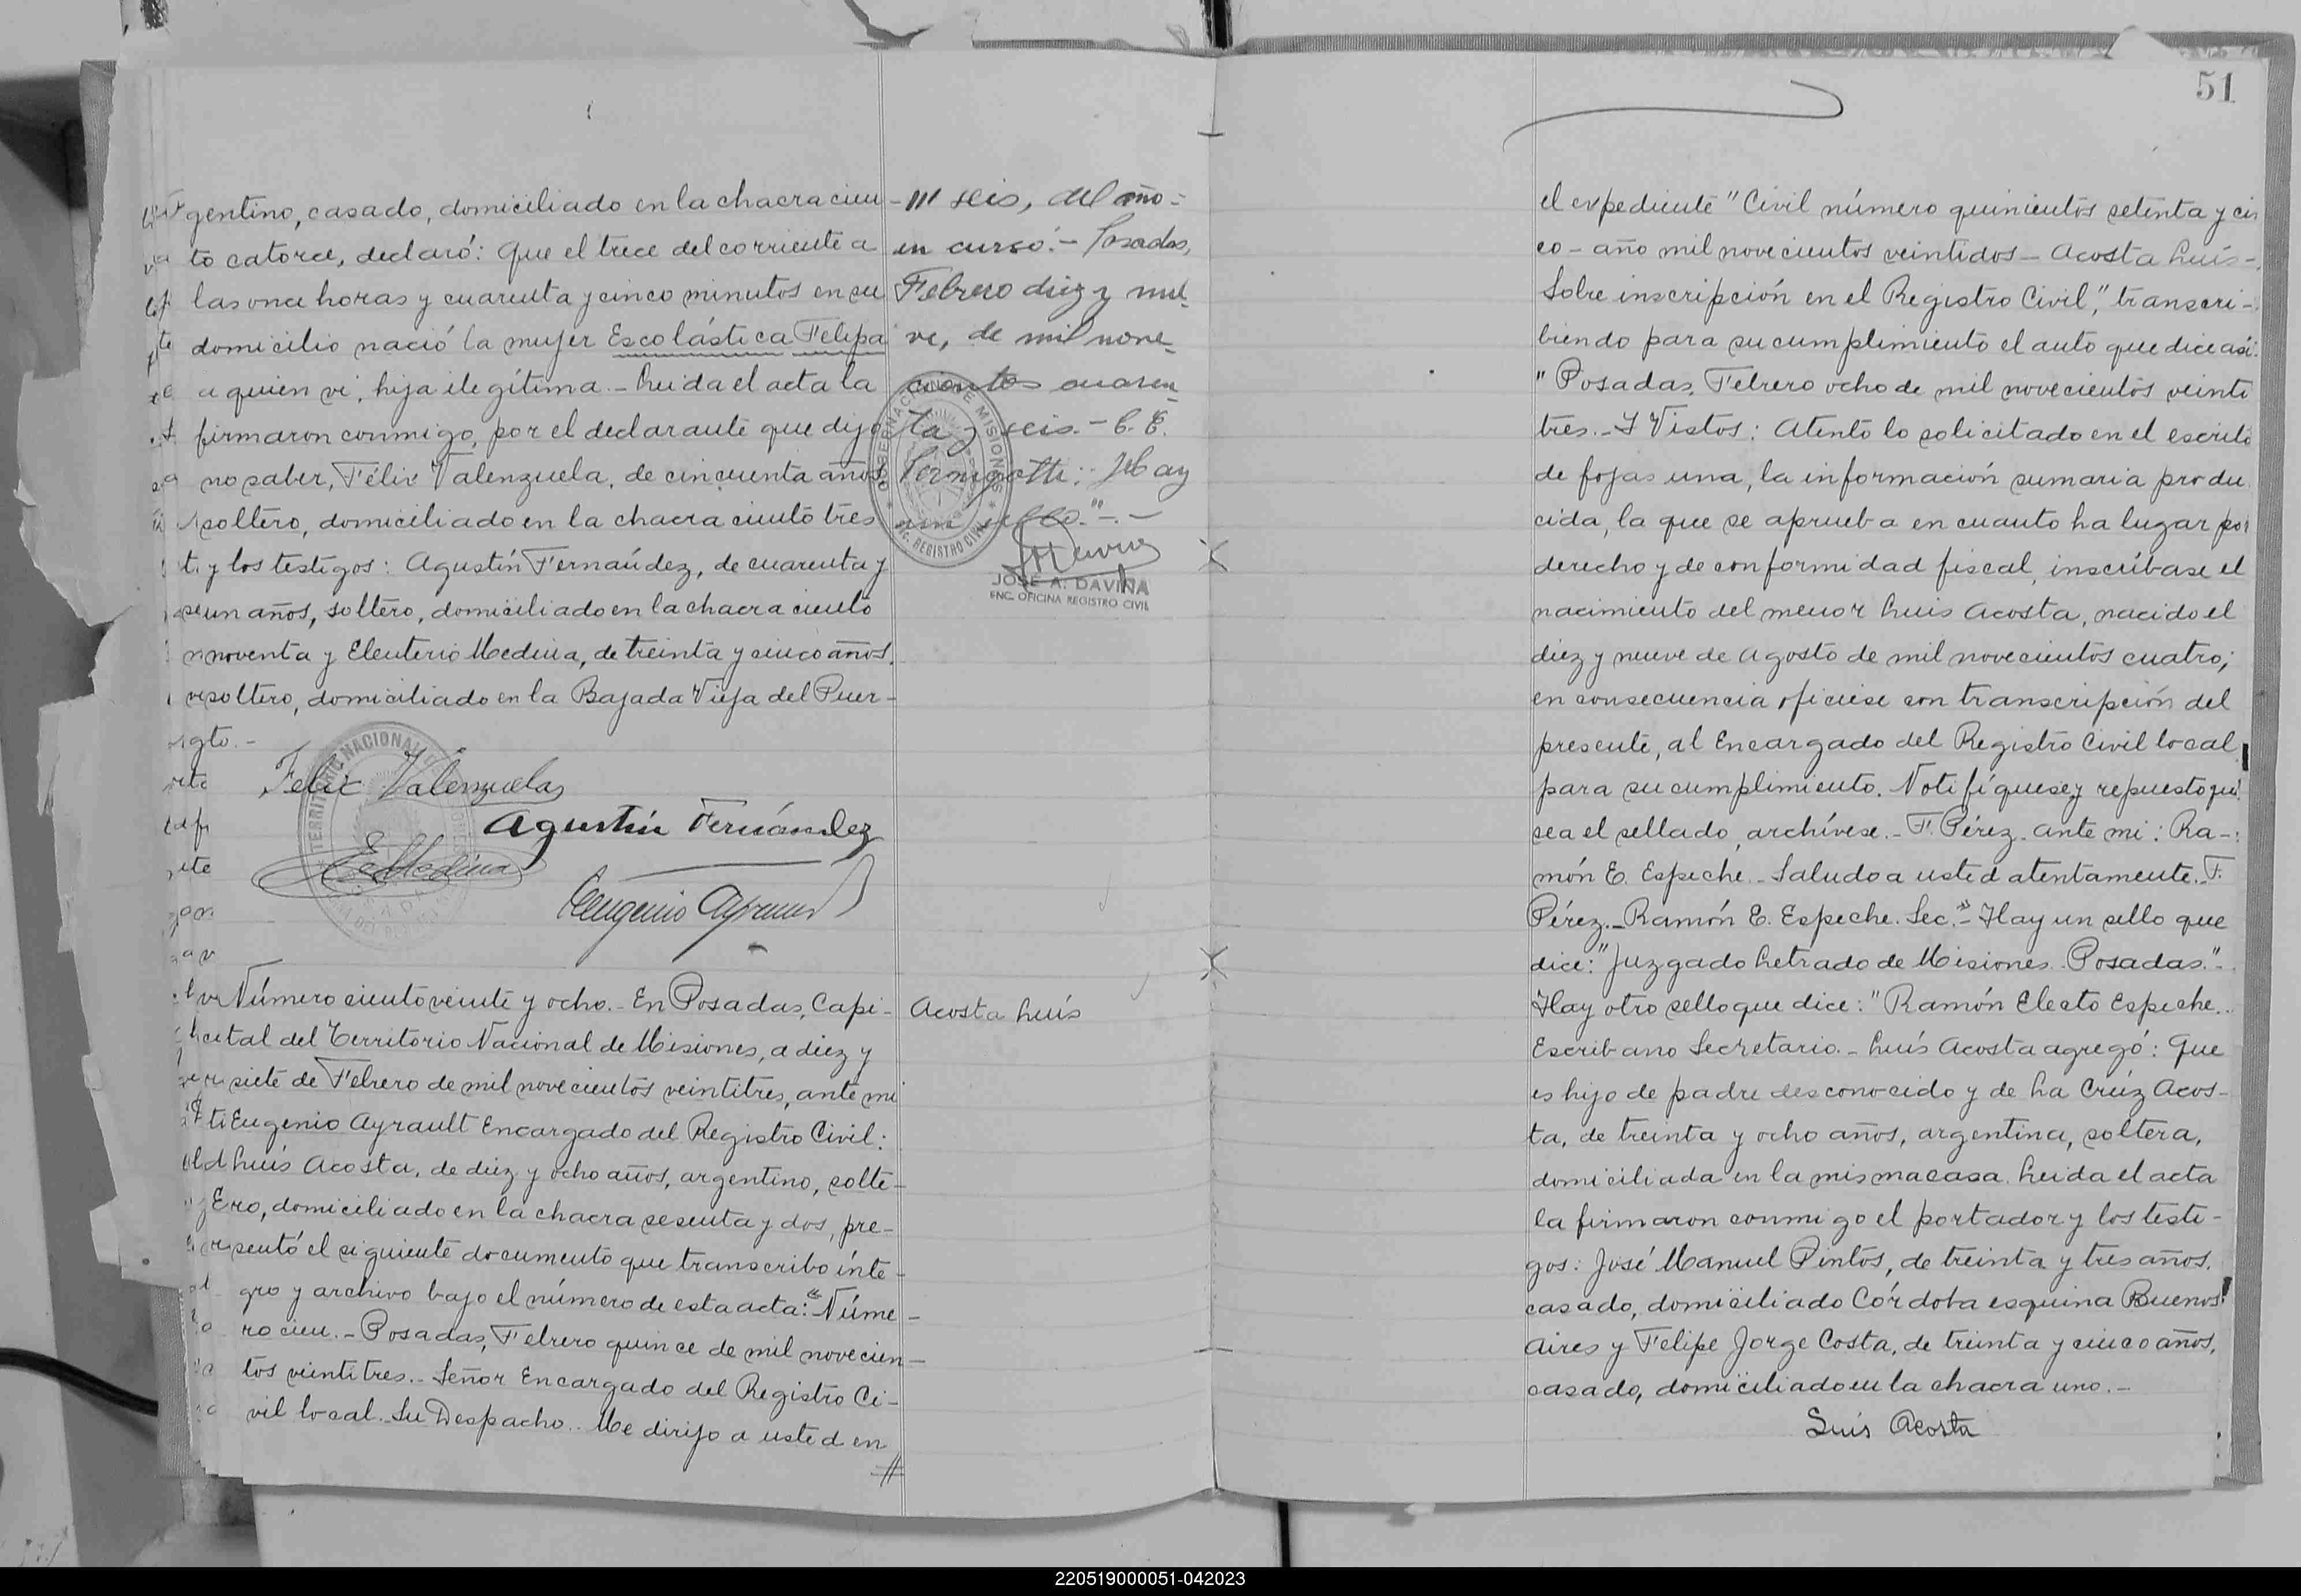 gentino, casado, domiciliado en la chacra cien
to catorce, declaró: Que el trece del corriente a
las once horas y cuarenta y cinco minutos en su
domicilio nació la mujer Escolástica Felipa
a quien vi, hija ilegítima.- Leida el acta la
firmaron conmigo, por el declarante que dijo
no saber, Félix Valenzuela, de cincuenta años
soltero, domiciliado en la chacra ciento tres
y los testigos: Agustín Fernández, de cuarenta y
un años, soltero, domiciliado en la chacra ciento
noventa y Eleuterio Medina, de treinta y cinco años,
soltero, domiciliado en la Bajada Vieja del Puer-
to.-
Felix Valenzuela
Agustín Fernández
E Medina
Eugenio Ayrault
seis, del año-
en curso.- Posadas,
Febrero diez y nue_
ve, de mil nove_
cientos cuaren_
ta y seis.- C. E.
Hay
un sello."-.-
GOBERNACION DE MISIONES
ENC. REGISTRO CIVIL
JOSÉ A. DAVIÑA
ENC. OFICINA REGISTRO CIVIL
Número ciento veinte y ocho.- En Posadas, Capi-
tal del Territorio Nacional de Misiones, a diez y
siete de Febrero de mil novecientos veintitres, ante mi
Eugenio Ayrault Encargado del Registro Civil:
Luís Acosta, de diez y ocho años, argentino, solte-
ro, domiciliado en la chacra sesenta y dos, pre-
sentó el siguiente documento que transcribo ínte-
gro y archivo bajo el número de esta acta: "Núme-
ro cien.- Posadas, Febrero quince de mil novecien-
tos veintitres.- Señor Encargado del Registro Ci-
vil local. Su Despacho.. Me dirijo a usted en
//
Acosta Luís
51
el expediente "Civil número quinientos setenta y cin
co - año mil novecientos veintidos - Acosta Luís-
Sobre inscripción en el Registro Civil", transcri-
biendo para su cumplimiento el auto que dice así:
"Posadas, Febrero ocho de mil novecientos veinti
tres.- Y Vistos: Atento lo solicitado en el escrito
de fojas una, la información sumaria produ
cida, la que se aprueba en cuanto ha lugar por
derecho y de conformidad fiscal, inscríbase el
nacimiento del menor Luis Acosta, nacido el
diez y nueve de Agosto de mil novecientos cuatro;
en consecuencia ofíciese con transcripción del
presente, al Encargado del Registro Civil local
para su cumplimiento. Notifíquese y repuesto que
sea el sellado, archívese.- F. Pérez. Ante mi: Ra-
món E. Espeche.- Saludo a usted atentamente.- F.
Pérez.- Ramón E. Espeche. Sec."- Hay un sello que
dice: "Juzgado Letrado de Misiones. Posadas."-
Hay otro sello que dice: "Ramón Electo Espeche..
Escribano Secretario.- Luís Acosta agregó: Que
es hijo de padre desconocido y de La Crúz Acos-
ta, de treinta y ocho años, argentina, soltera,
domiciliada en la misma casa. Leida el acta
la firmaron conmigo el portador y los testi-
gos: José Manuel Pintos, de treinta y tres años,
casado, domiciliado Córdoba esquina Buenos
Aires y Felipe Jorge Costa, de treinta y cinco años,
casado, domiciliado en la chacra uno.-
Luis Acosta
220519000051-042023